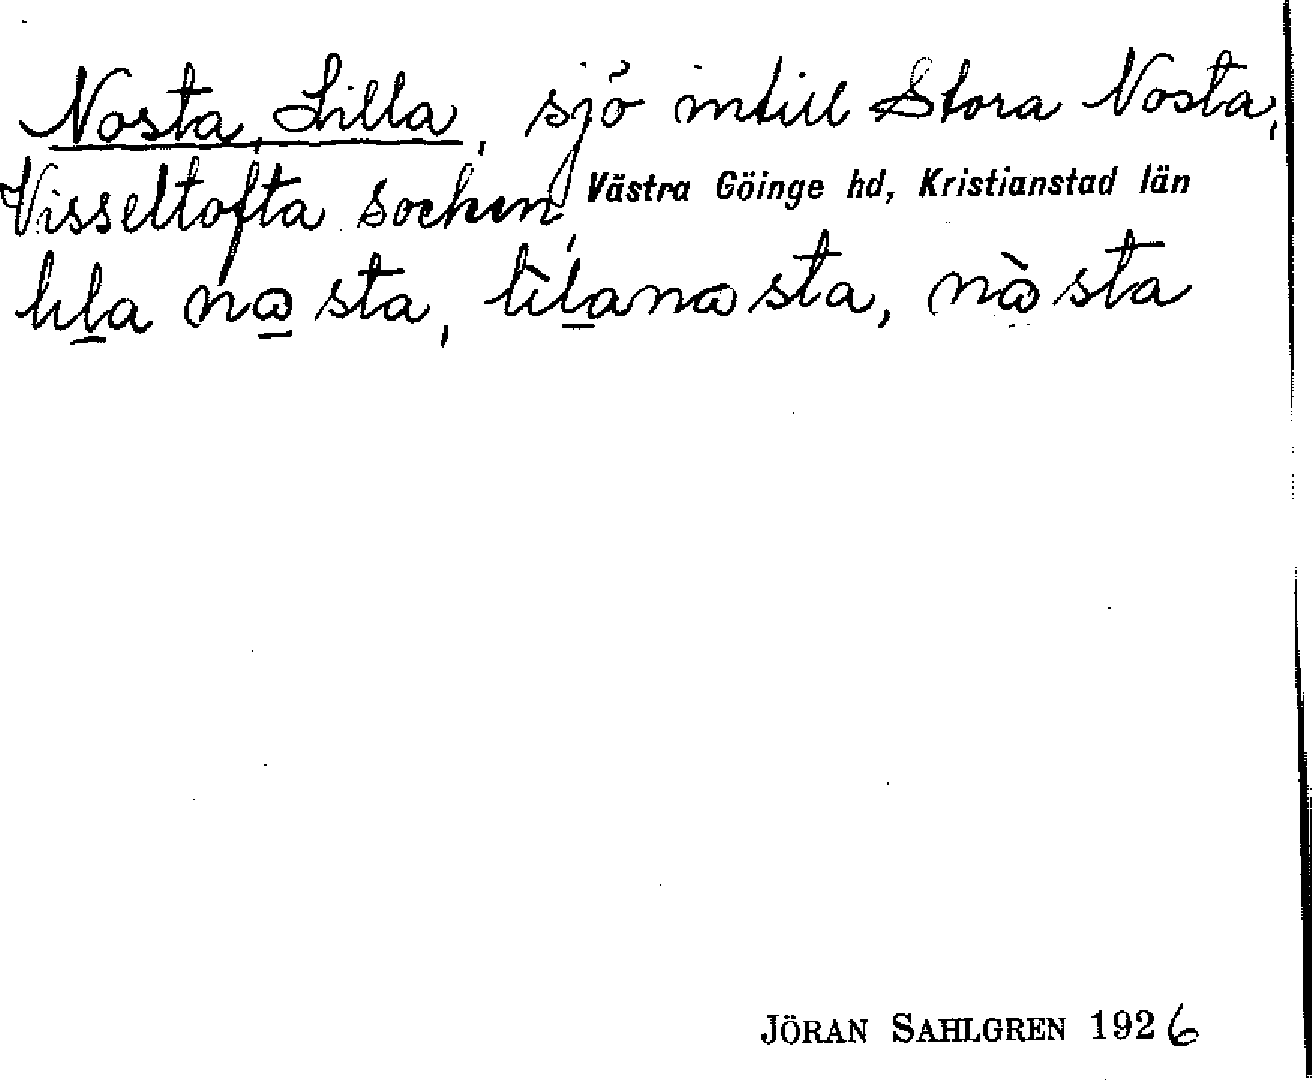 Nosta, Lilla, sjö intill Stora Nosta,
Visseltofta socken, Västra Göinge hd, Kristianstad län
lila nosta, lìlanosta, nòsta
JÖRAN SAHLGREN 1926